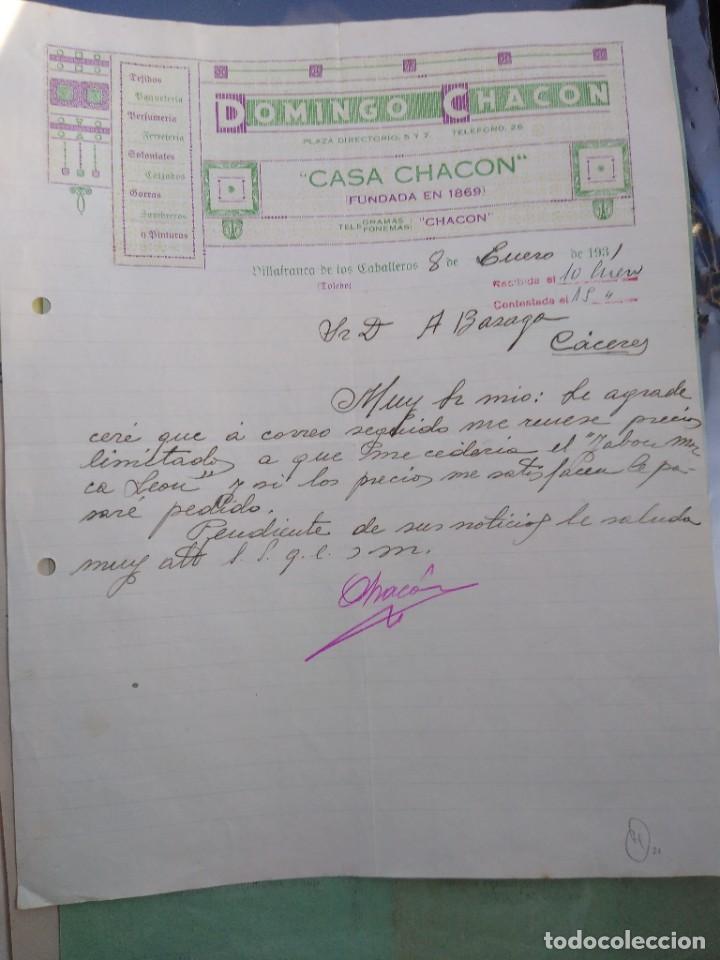 Tejidos
Paquetería
Perfumería
Ferretería
Coloniales
Calzados
Gorras
Sombreros
y Pinturas
DOMINGO CHACON
PLAZA DIRECTORIO, 5 Y 7. TELEFONO, 26
"CASA CHACON"
(FUNDADA EN 1869)
TELEGRAMAS
TELEFONEMAS: "CHACON"
Villafranca de los Caballeros 8 de Enero de 1931
(Toledo)
Recibida el 10 Enero
Contestada el 15 "
Sr D A Bazaga
Cáceres
Muy Sr mio: Le agrade
ceré que á correo seguido me remese precios
limitados a que me cederia el "Jabon Mar
ca Leon" y si los precios me satisfacen le pa-
saré pedido.
Pendiente de sus noticias le saluda
muy att S. S. q. e. s m.
Chacón
todocoleccion.net